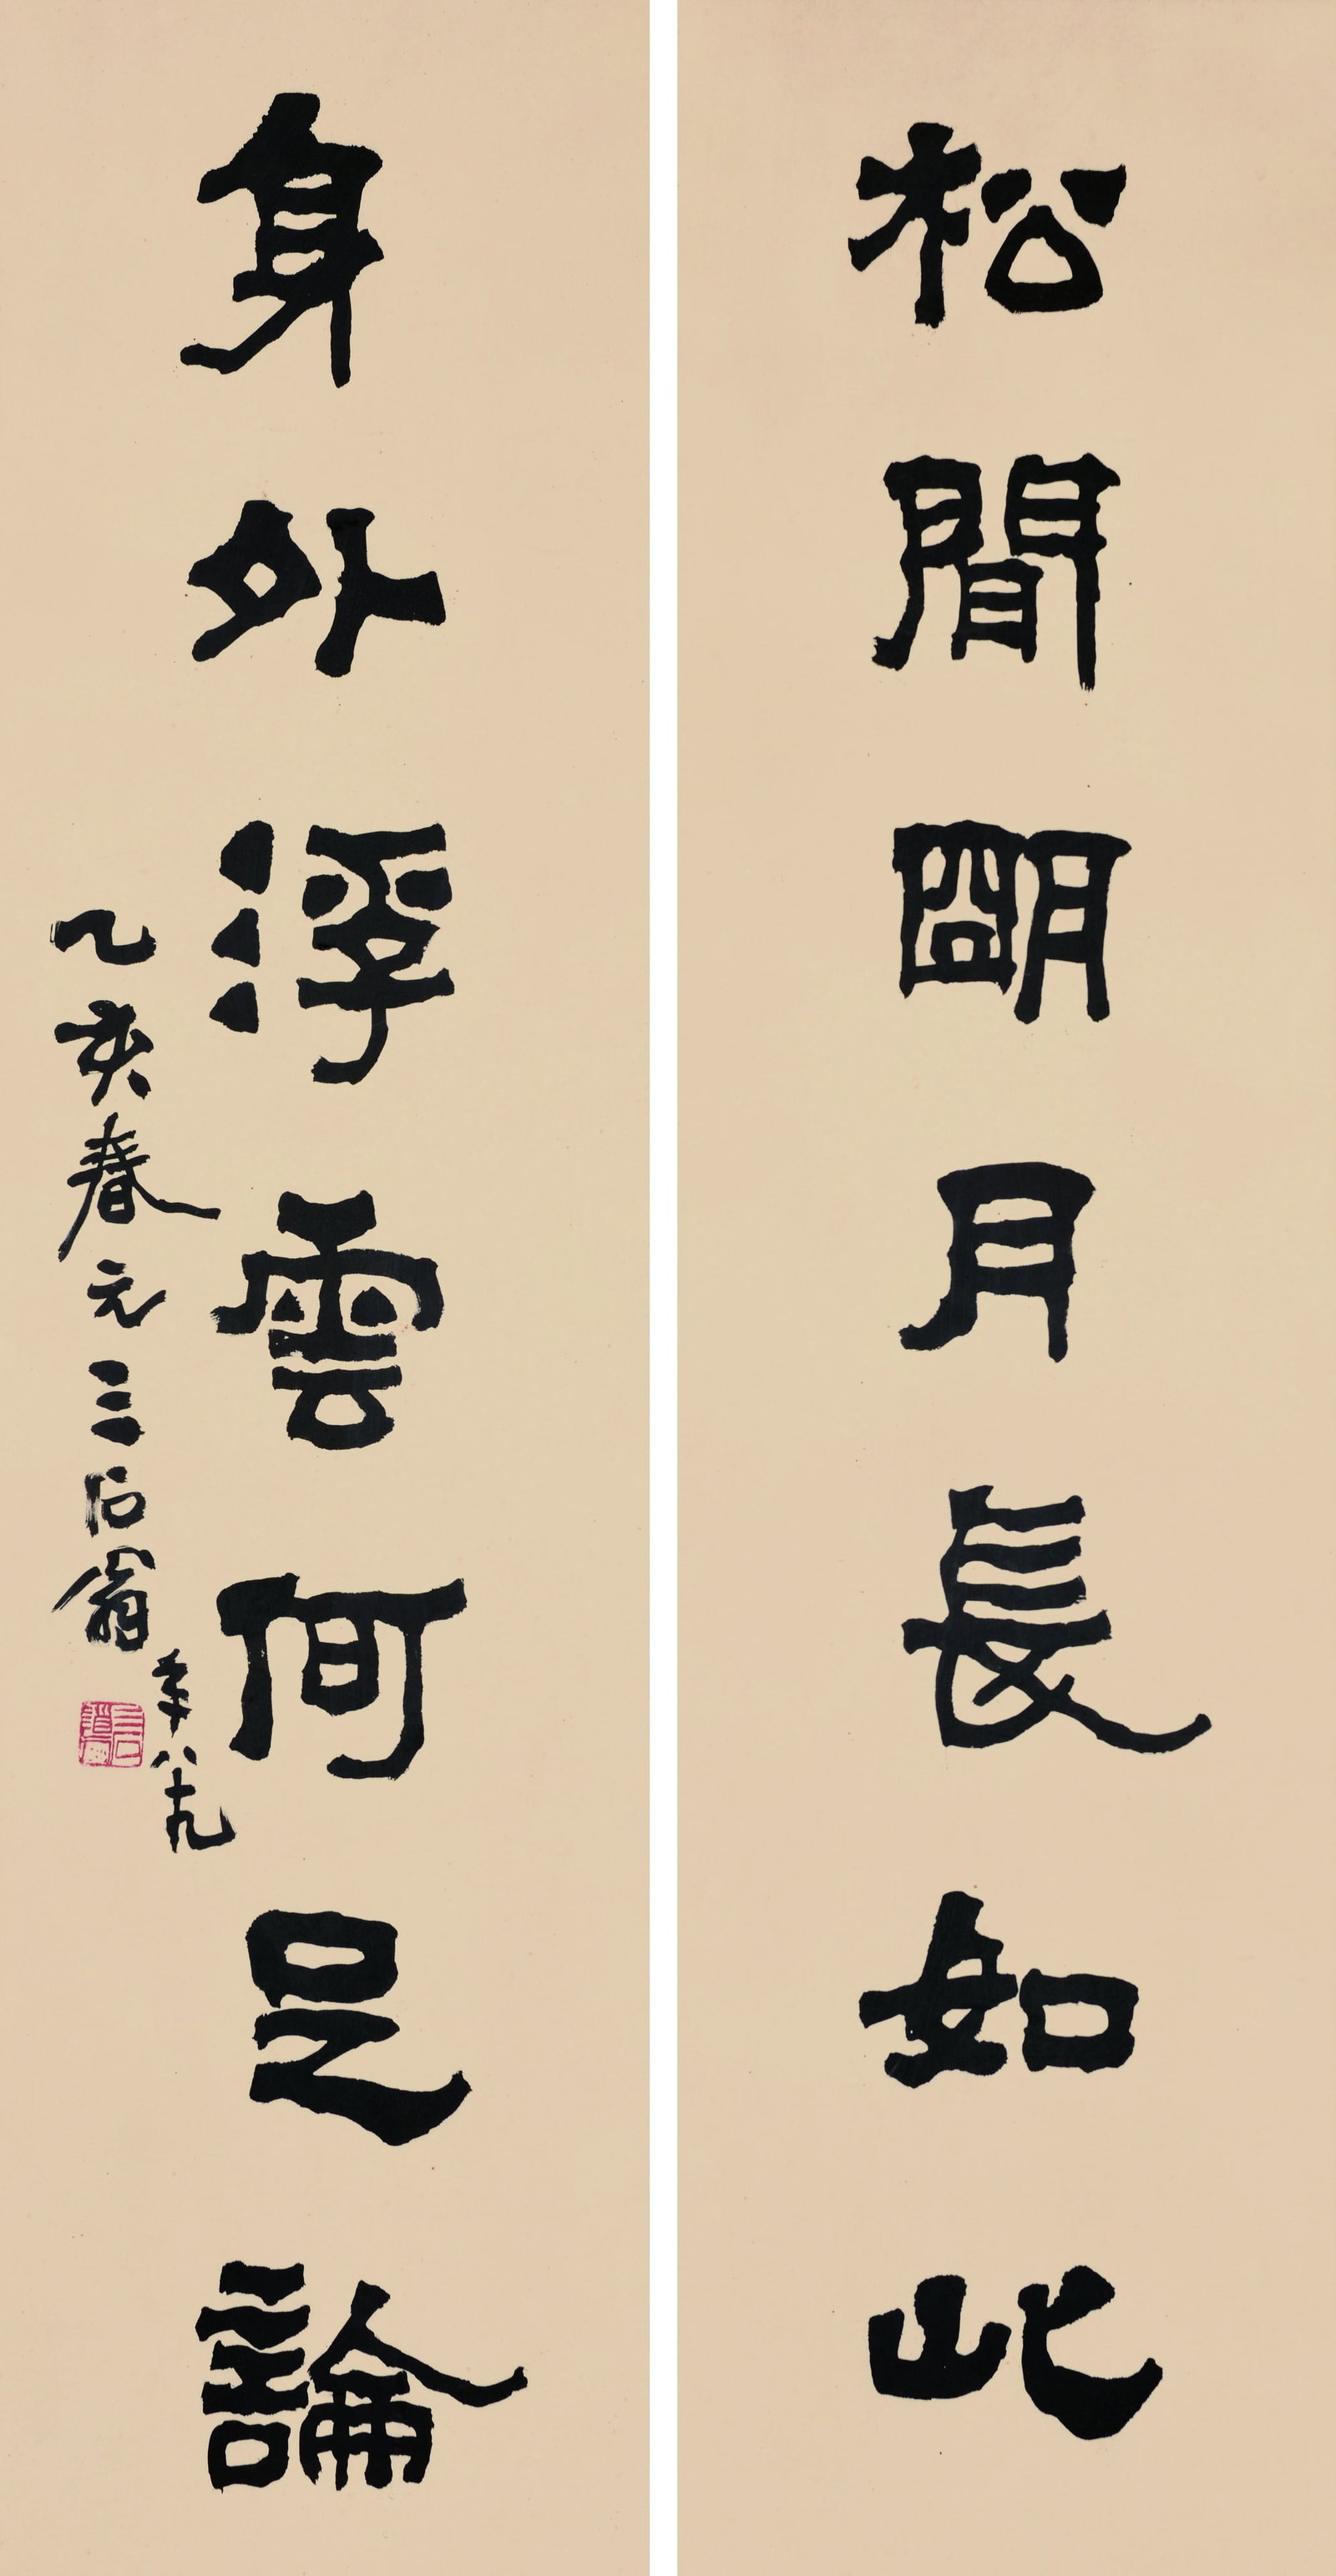 松間朙月長如此
身外浮雲何足論
乙亥春元三石翁
年八十九